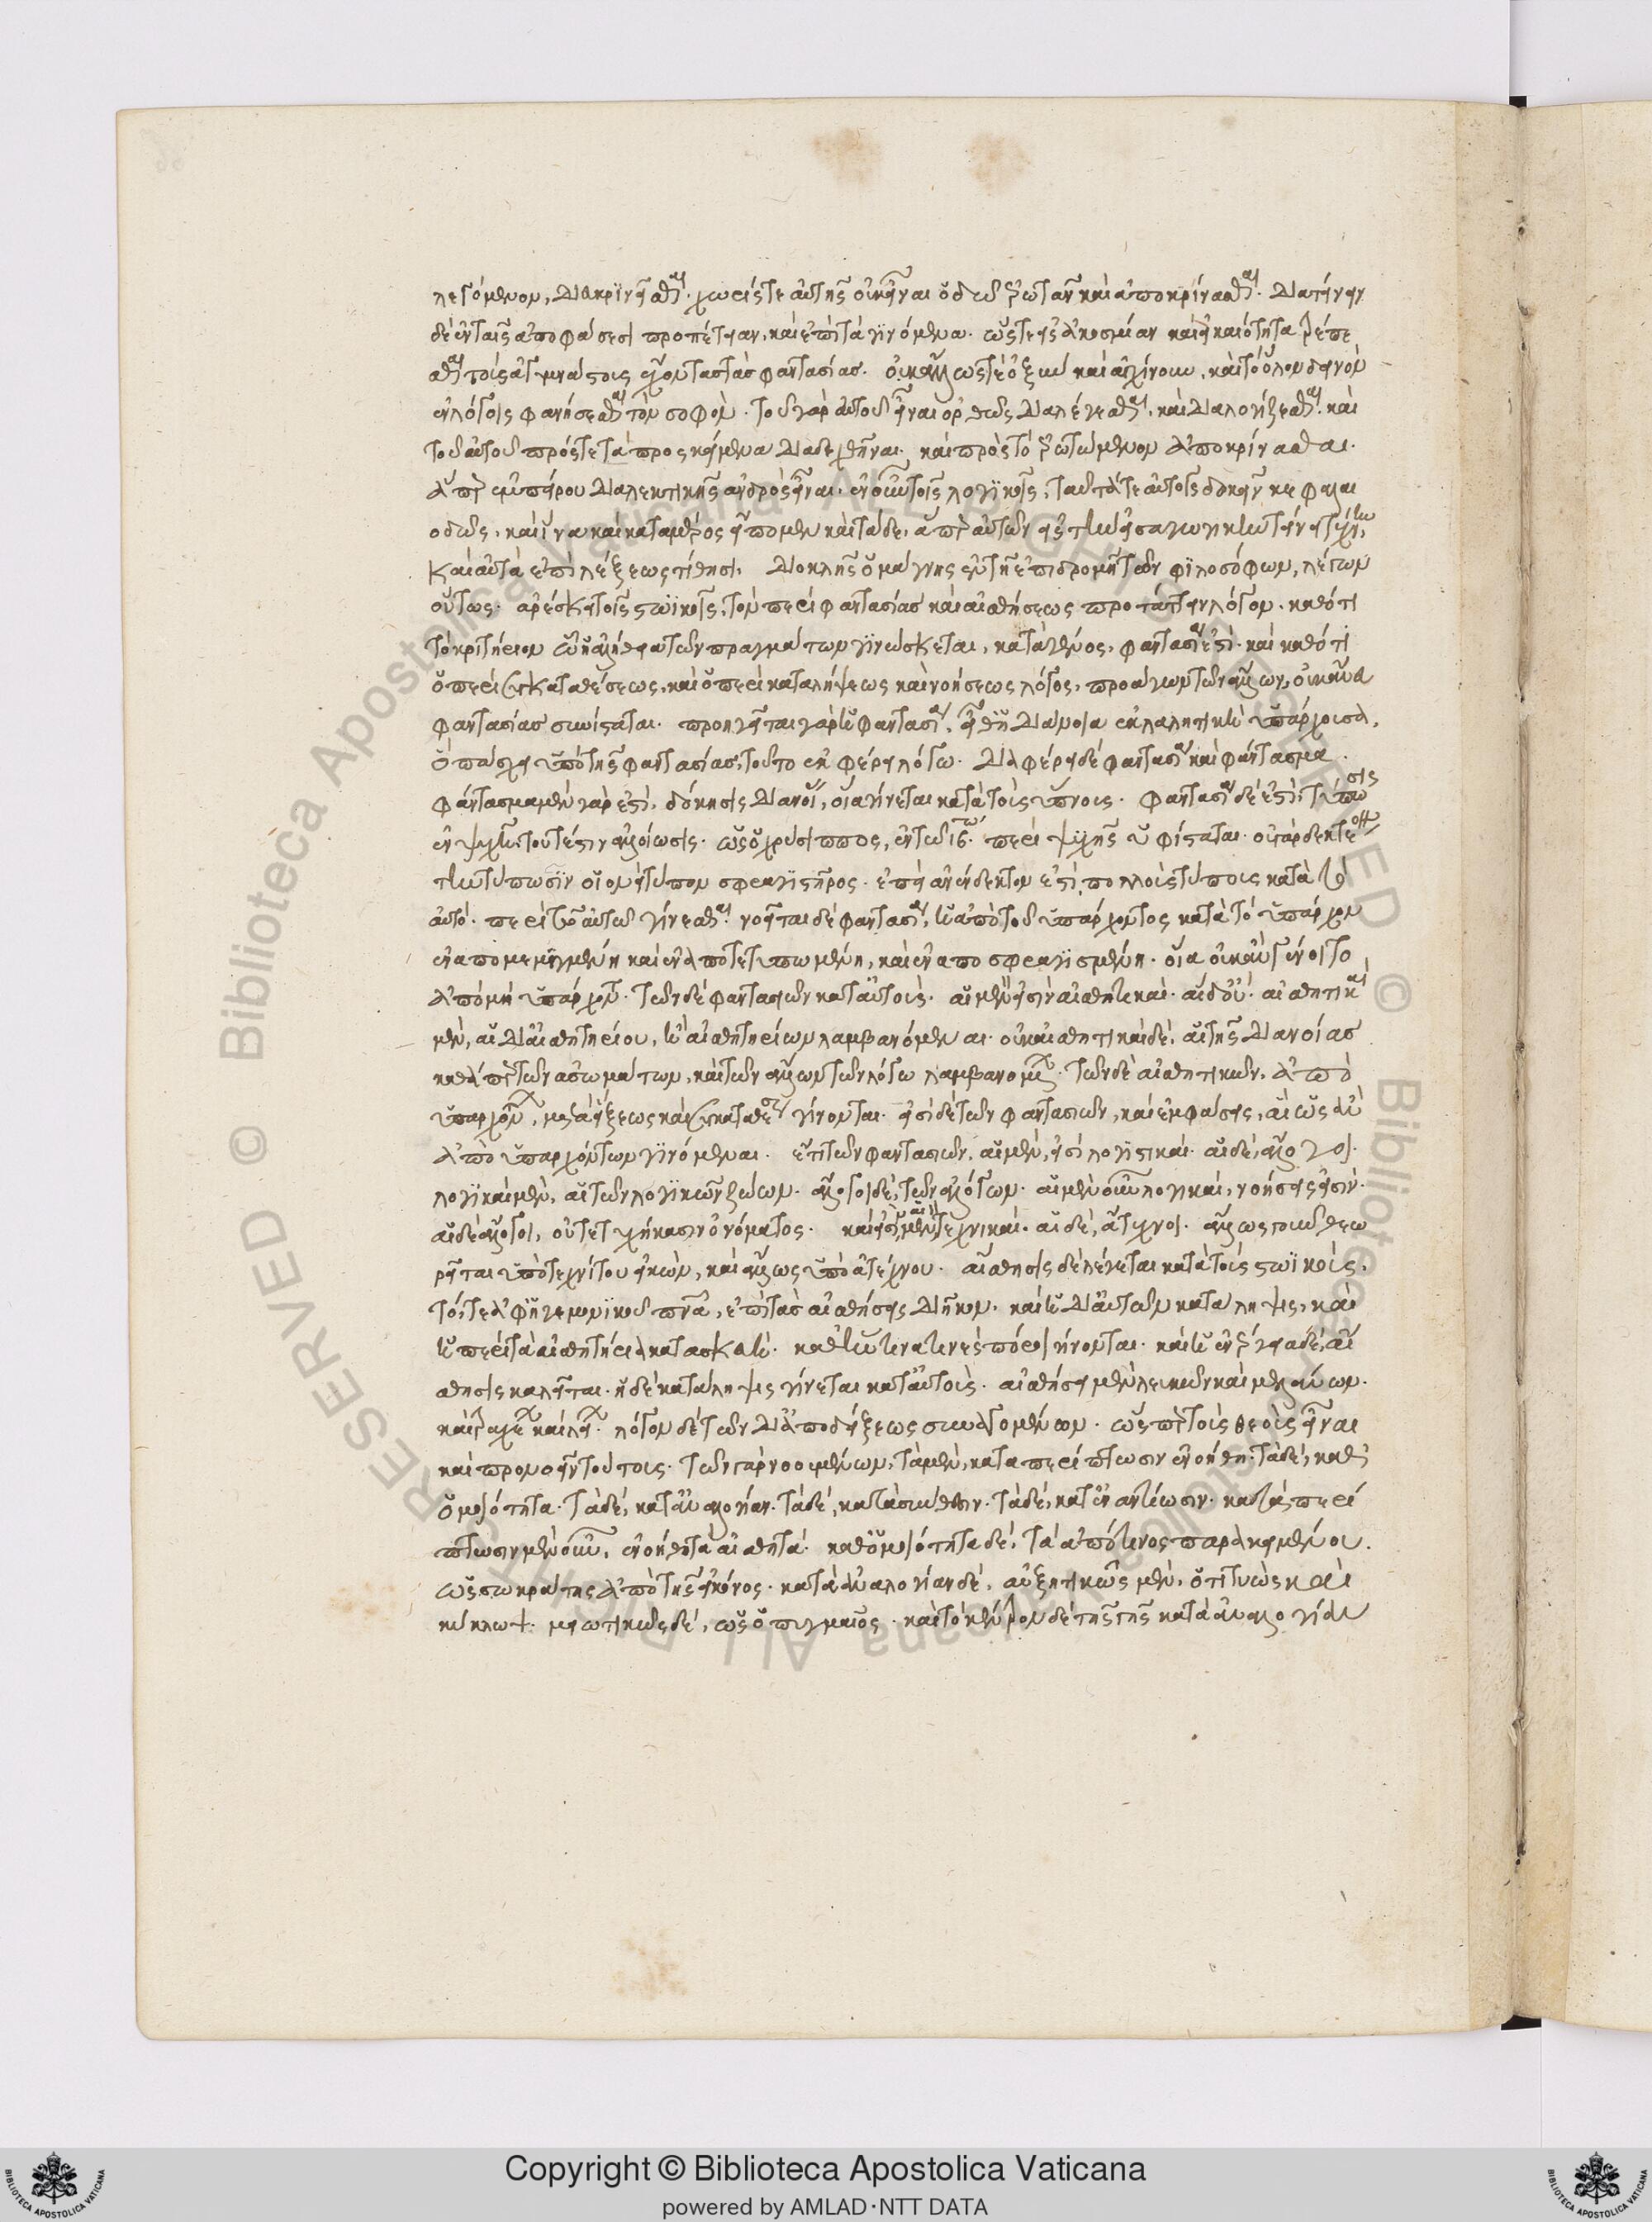 λεγόμενον, διακρινεῖσθαι. χωρίς τε αὐτῆς οὐκ εἶναι ὁδῷ ἐρωτᾶν καὶ ἀποκρίνασθαι. διατείνειν
δὲ ἐν ταῖς ἀποφάσεσι προπέτειαν, καὶ ἐπὶ τὰ γινόμενα. ὥστε εἰς ἀκοσμίαν καὶ εἰκαιότητα τρέπε
σθαι τοὺς ἀγυμνάστους ἔχοντας τὰς φαντασίας. οὐκ ἄλλως τε ὀξὺν καὶ ἀγχίνουν, καὶ τὸ ὅλον δεινὸν
ἐν λόγοις φανήσεσθαι τὸν σοφόν. τοῦ γὰρ αὐτοῦ εἶναι ὀρθῶς διαλέγεσθαι, καὶ διαλογίζεσθαι. καὶ
τοῦ αὐτοῦ πρός τε τὰ προσκείμενα διαδεχθῆναι. καὶ πρὸς τὸ ἐρωτώμενον ἀποκρίνασθαι.
ἅπερ ἐμπείρου διαλεκτικῆς ἀνδρὸς εἶναι. ἐν οὖν τοῖς λογικοῖς, ταῦτά τε αὐτοῖς δοκεῖν κεφαλαι
οδῶς. καὶ ἵνα καὶ κατὰ μέρος εἴπομεν καὶ τάδε, ἅπερ αὐτῶν εἰς τὴν εἰσαγωγικὴν τείνει τέχνην,
καὶ αὐτὰ ἐπὶ λέξεως τίθησι. Διοκλῆς ὁ μάγνης ἐν τῇ ἐπιδρομῇ τῶν φιλοσόφων, λέγων
οὕτως. ἀρέσκει τοῖς στωϊκοῖς, τὸν περὶ φαντασίας καὶ αἰσθήσεως προτάττειν λόγον. καθότι
τὸ κριτήριον ᾧ ἡ ἀλήθεια τῶν πραγμάτων γινώσκεται, κατὰ γένος, φαντασία ἐστὶ. καὶ καθότι
ὁ περὶ συγκαταθέσεως, καὶ ὁ περὶ καταλήψεως καὶ νοήσεως λόγος, προάγων τῶν ἄλλων, οὐκ ἄνευ
φαντασίας συνίσταται. προηγεῖται γὰρ ἡ φαντασία, εἶθ' ἡ διάνοια ἐκλαλητικὴ ὑπάρχουσα,
ὃ πάσχει ὑπὸ τῆς φαντασίας, τοῦτο ἐκφέρει λόγῳ. διαφέρει δὲ φαντασία καὶ φάντασμα.
φάντασμα μὲν γάρ ἐστι, δόκησις διανοίας, οἵα γίνεται κατὰ τοὺς ὕπνους. φαντασία δέ ἐστι, τύπωσις
ἐν ψυχῇ. τουτέστιν ἀλλοίωσις. ὡς ὁ χρύσιππος, ἐν τῷ ιβ. περὶ ψυχῆς ὑφίσταται. οὐ γὰρ δεκτέον
τὴν τύπωσιν οἱονεὶ τύπον σφραγιστῆρος. ἐπεὶ ἀνένδεκτόν ἐστι πολλοὺς τύπους κατὰ τὸ
αὐτό. περὶ τὸ αὐτῷ γίνεσθαι. νοεῖται δὲ φαντασία, ἡ ἀπὸ τοῦ ὑπάρχοντος κατὰ τὸ ὑπάρχον
ἐναπομεμαγμένη καὶ ἐναποτετυπωμένη, καὶ ἐναποσφραγισμένη. οἵα οὐκ ἂν γένοιτο
ἀπὸ μὴ ὑπάρχοντος. τῶν δὲ φαντασιῶν κατ' αὐτοὺς. αἱ μέν εἰσιν αἰσθητικαί. αἱ δ' οὔ. αἰσθητικαὶ
μὲν, αἱ δι' αἰσθητηρίου, ἢ αἰσθητηρίων λαμβανόμεναι. οὐκ αἰσθητικαὶ δὲ, αἱ τῆς διανοίας
καθάπερ τῶν ἀσωμάτων, καὶ τῶν ἄλλων τῶν λόγῳ λαμβανομένων. τῶν δὲ αἰσθητικῶν, ἀπὸ
ὑπαρχόντων, μετὰ εἴξεως καὶ συγκαταθέσεως γίνονται. εἰσὶ δὲ τῶν φαντασιῶν, καὶ ἐμφάσεις, αἱ ὡς ἂν
ἀπὸ ὑπαρχόντων γινόμεναι. ἔτι τῶν φαντασιῶν, αἱ μέν, εἰσὶ λογικαί. αἱ δὲ, ἄλογοι.
λογικαὶ μὲν, αἱ τῶν λογικῶν ζώων. ἄλογοι δὲ, τῶν ἀλόγων. αἱ μὲν οὖν λογικαί, νοήσεις εἰσίν.
αἱ δὲ ἄλογοι, οὐ τετυχήκασιν ὀνόματος. καὶ εἰσὶν αἱ μὲν τεχνικαί. αἱ δὲ, ἄτεχνοι. ἄλλως γοῦν θεω
ρεῖται ὑπὸ τεχνίτου εἰκών, καὶ ἄλλως ὑπὸ ἀτέχνου. αἴσθησις δὲ λέγεται κατὰ τοὺς στωϊκούς,
τό, τε ἀφ' ἡγεμονικοῦ πνεῦμα, ἐπὶ τὰς αἰσθήσεις διῆκον. καὶ ἡ δι' αὐτῶν κατάληψις, καὶ
ἡ περὶ τὰ αἰσθητήρια κατασκευή. καθ' ἥν τινα τινὲς πηροὶ γίνονται. καὶ ἡ ἐνέργεια δὲ, αἴ
σθησις καλεῖται. ἡ δὲ κατάληψις γίνεται κατ' αὐτοὺς. αἰσθήσει μὲν λευκῶν καὶ μελάνων.
καὶ τραχέων καὶ λείων. λόγῳ δὲ τῶν δι' ἀποδείξεως συναγομένων. ὥσπερ τοὺς θεοὺς εἶναι
καὶ προνοεῖν τούτους. τῶν γὰρ νοουμένων, τὰ μὲν, κατὰ περίπτωσιν ἐνοήθη. τὰ δὲ, καθ'
ὁμοιότητα. τὰ δὲ, κατ' ἀναλογίαν. τὰ δὲ, κατὰ σύνθεσιν. τὰ δὲ, κατ' ἐναντίωσιν. κατὰ περί
πτωσιν μὲν οὖν, ἐνοήθη τὰ αἰσθητά. καθ' ὁμοιότητα δὲ, τὰ ἀπό τινος παρακειμένου.
ὡς σωκράτης ἀπὸ τῆς εἰκόνος. κατὰ ἀναλογίαν δὲ, αὐξητικῶς μὲν, ὁ τιτυὸς καὶ
κύκλωψ. μειωτικῶς δέ, ὡς ὁ πυγμαῖος. καὶ τὸ κέντρον δὲ τῆς γῆς κατὰ ἀναλογίαν